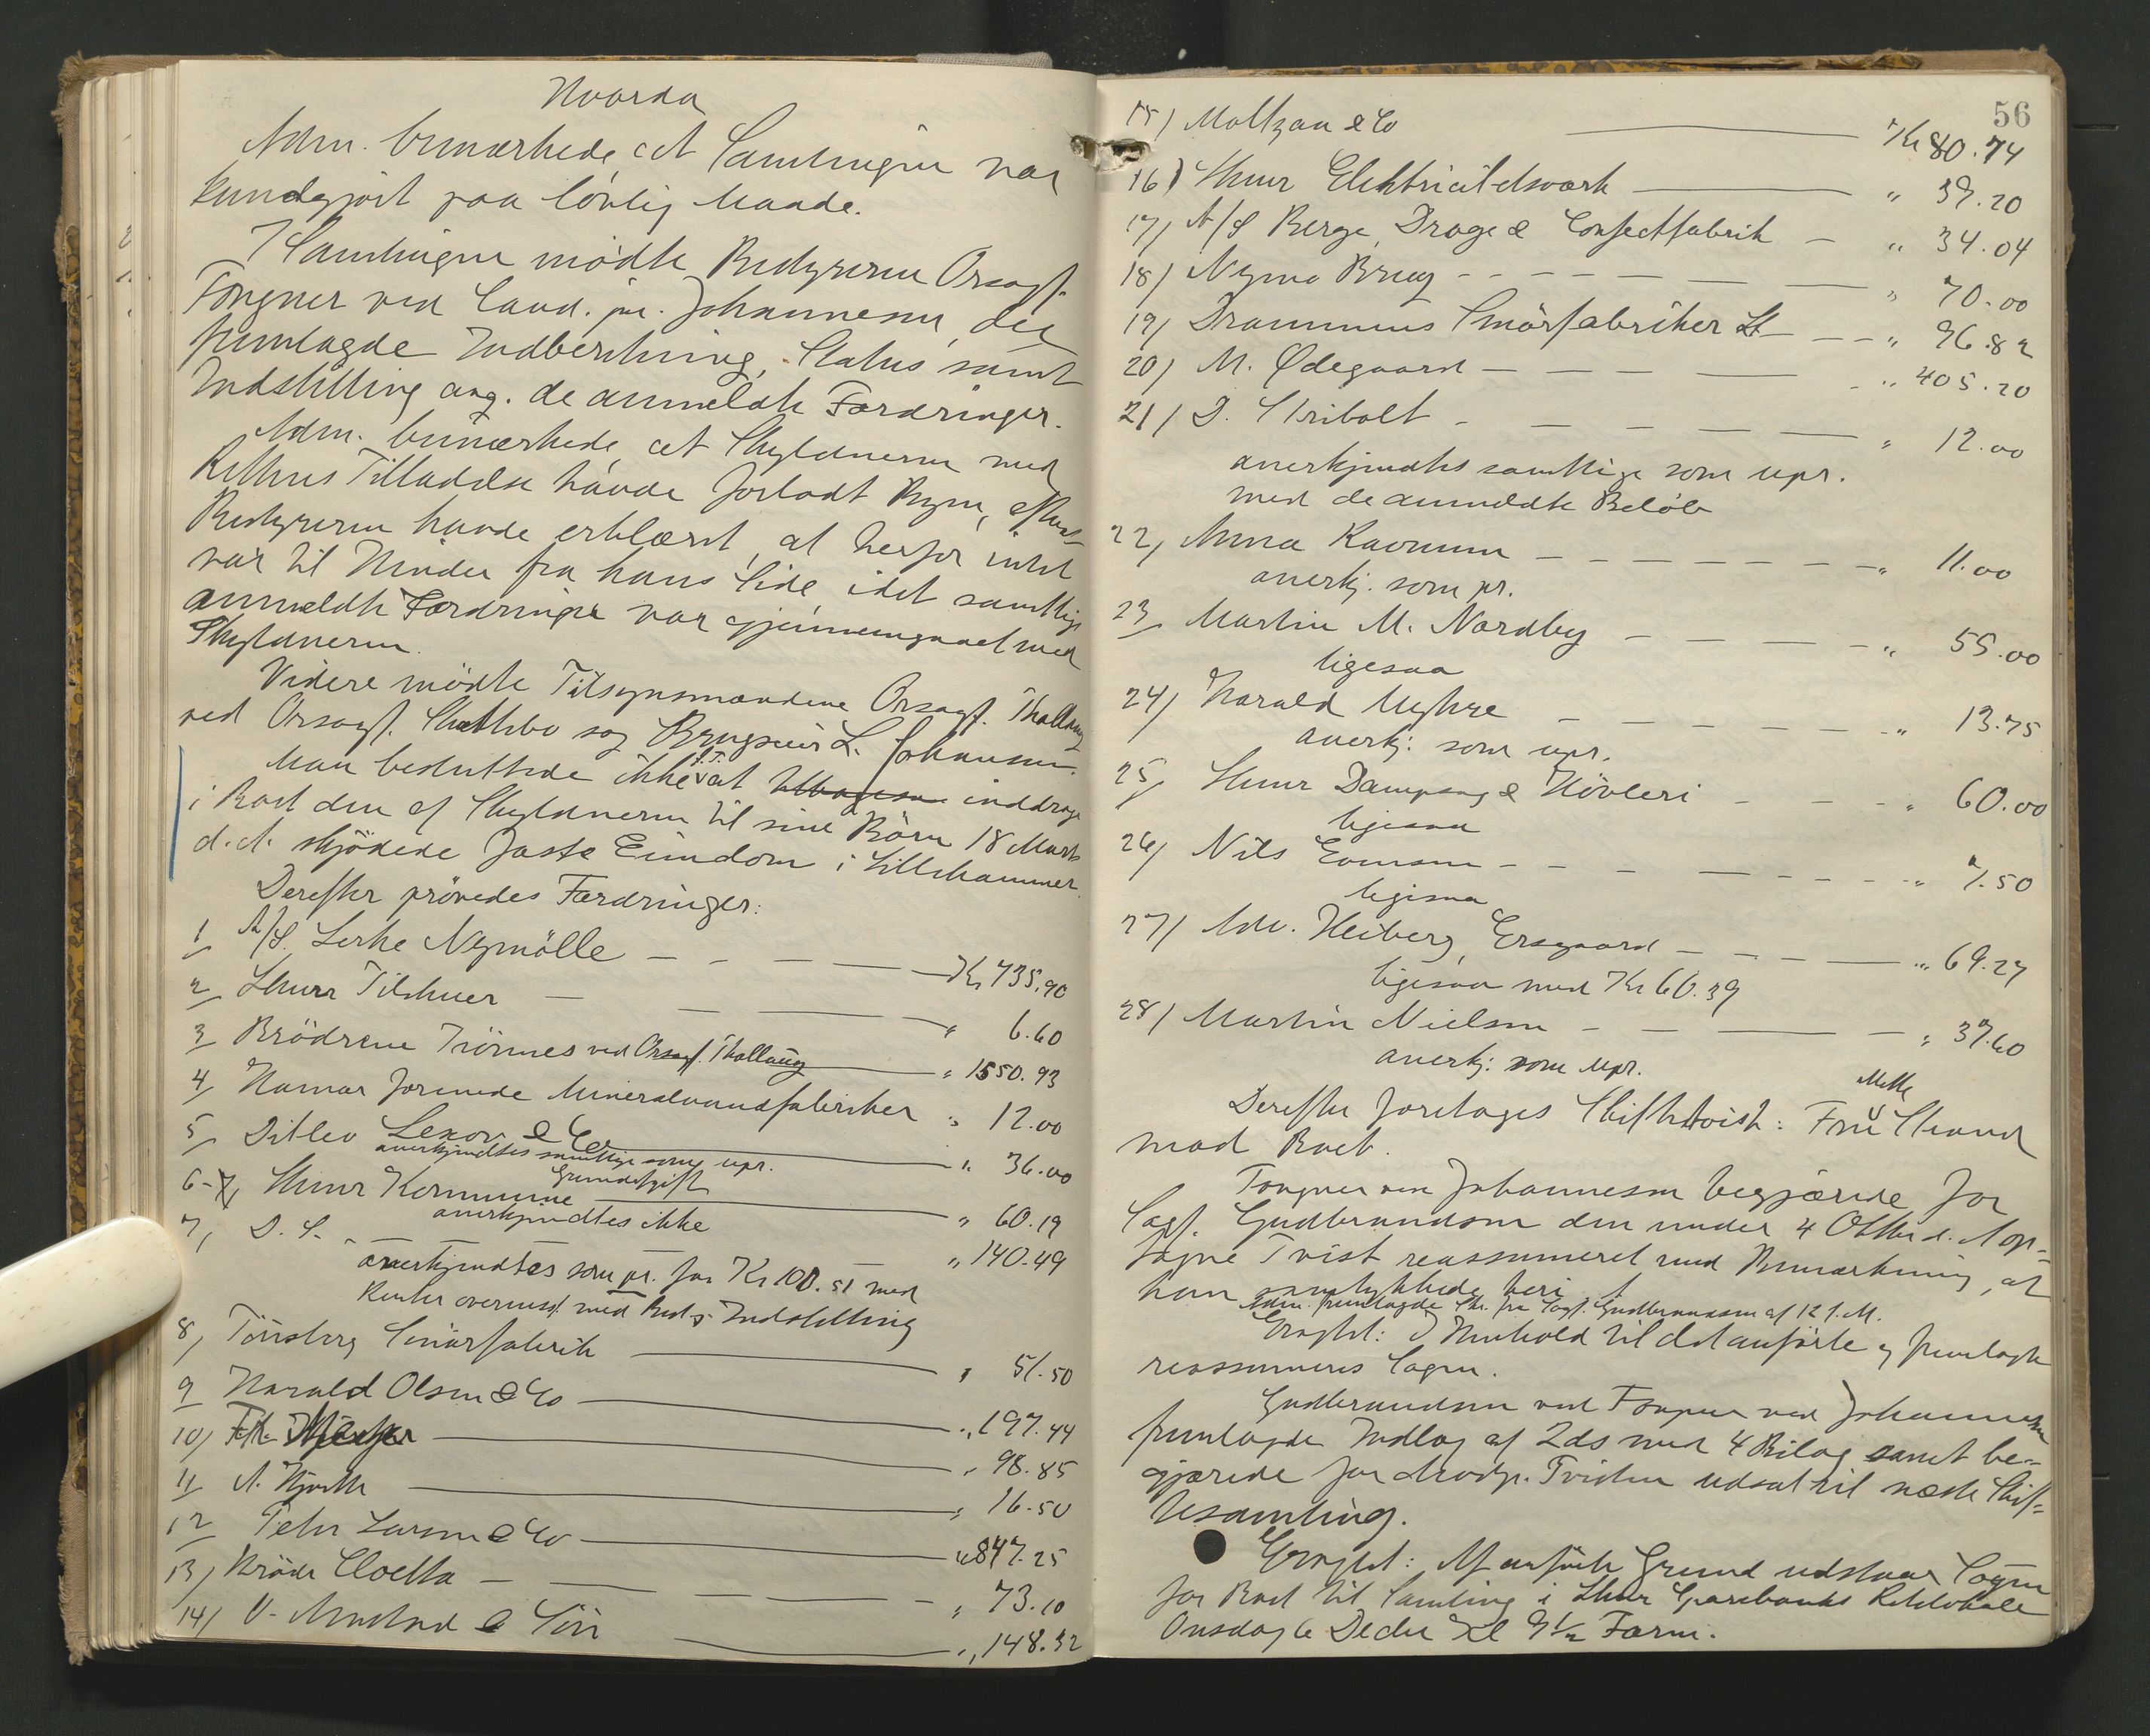 Hvorda
Adm. bemærkede, at Samlingen var
kundgjort paa lovlig Maade.
I Samlingen mødte Bestyreren Orsagf.
Fougner ved Cand. jur. Johannesen, der
fremlagde Indberetning, Status samt
Indstilling ang. de anmeldte Fordringer.
Adm. bemærkede, at Skyldneren med
Rettens Tilladelse havde forladt Byen, efterat
Bestyreren havde erklæret, at herfor intet
var til Hinder fra hans Side idet samtlige
anmeldte Fordringer var gjennemgaaet med
Skyldneren.
Videre mødte Tilsynsmændene Orsagf. Thallaug
ved Orsagf. Skattebo og Brugseier L. Johansen.
Man besluttede ikke f.T. at inddrage
i Boet den af Skyldneren til sine Børn 18 Marts
d.A. skjødede faste Eiendom i Lillehammer.
Derefter prøvedes Fordringer:
1 A/S. Lerke Nymølle Kr 735.90
2 Lhmr Tilskuer " 6.60
3 Brødrene Trønnes ved Orsagf. Thallaug " 1550.93
4 Hamar forenede Mineralvandfabriker " 12.00
5 Ditlev Lexow & Co " 36.00
anerkjendtes samtlige som upr.
6-7, Lhmr Kommune Grundafgift " 60.19
anerkjendtes ikke
7, D. S. " 140.49
anerkjendtes som pr. for Kr 100.51 med
Renter overensst. med Best.s Indstilling
8, Tönsberg Smørfabrik " 51.50
9 Harald Olsen & Co " 197.44
10) Fr. " 98.85
11 A. Hjorth " 16.50
12 Peter Larsen & Co " 847.25
13) Brødr Cloetta " 73.10
14) O. Mustad & Søn " 148.32
56
15) Moltzau & Co Kr 80.74
16) Lhmr Elektricitetsværk " 39.20
17) A/S Berge, Drage & Confectfabrik " 34.04
18) Nymo Brug " 70.00
19) Drammens Smørfabriker Lt " 96.82
20) M. Ødegaard " 405.20
21) D. Stribolt " 12.00
anerkjendtes samtlige som upr.
med de anmeldte Beløb
22, Anna Ravnum " 11.00
anerkj. som pr.
23 Martin M. Nordby " 55.00
ligesaa
24) Harald Myhre " 13.75
anerkj: som upr.
25) Lhmr Dampsag & Høvleri " 60.00
ligesaa
26) Nils Evensen " 7.50
ligesaa
27) Adv. Heiberg, Ersgaard " 69.27
ligesaa med Kr 60.39
28) Martin Nielsen " 37.60
anerkj: som upr.
Derefter foretoges Skiftetvist: Fru Mette Strand
mod Boet.
Fougner ved Johannesen begjærede for
Sagf. Gudbrandsen den under 4 Oktbr d. A op-
tagne Tvist reassumeret med Bemærkning, at
han samtykkede heri
Adm. fremlagde Skr. fra Sagf. Gudbrandsen af 12 f.M.
Eragtet: I Henhold til det anførte og fremlagte
reassumeres Sagen.
Gudbrandsen ved Fougner ved Johannesen
fremlagde Indlæg af 2ds med 4 Bilag samt be-
gjærede for Modp. Tvisten udsat til næste Skif-
tesamling.
Eragtet: Af anførte Grund udstaar Sagen
for Boet til Samling i Lhmr Sparebanks Retslokale
Onsdag 6 Decbr Kl 9½ Form.